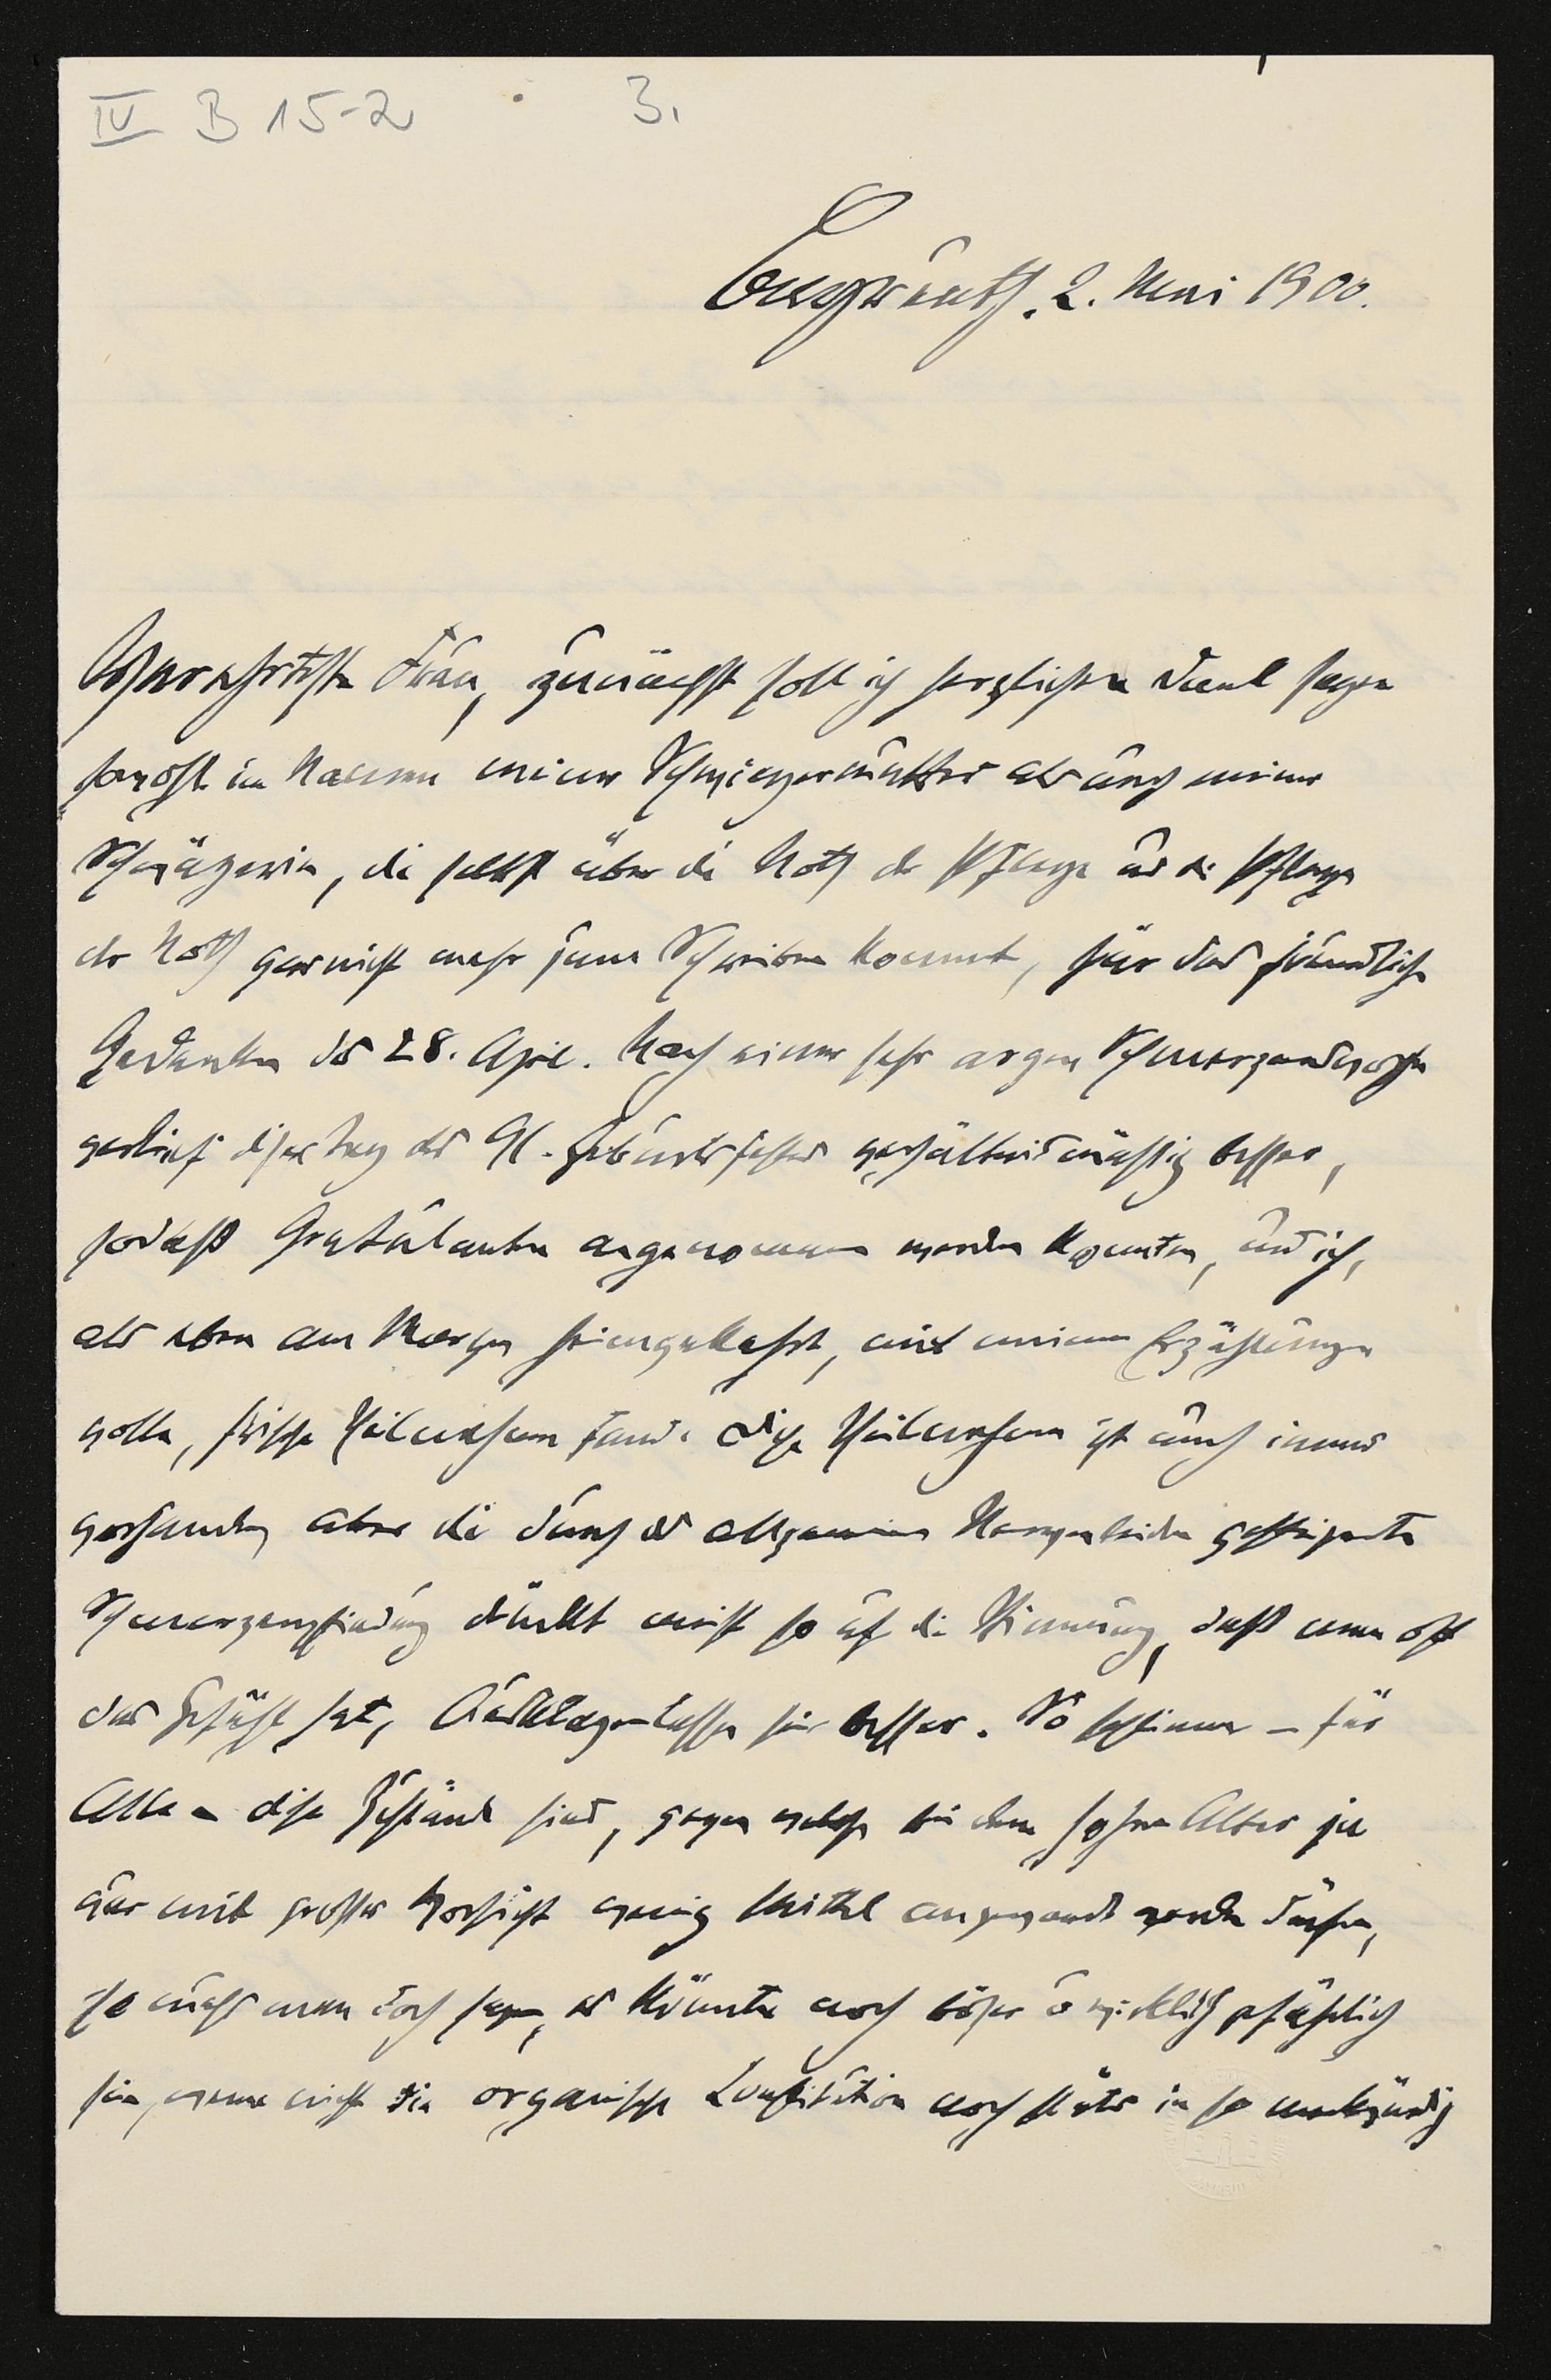 IV B 15-2 3.
Bayreuth. 2. Mai 1900.
Hochverehrteste Frau, zunächst soll ich herzlichen Dank sagen
sowohl im Namen meiner Schwiegermutter als auch meiner
Schwägerin, die selbst über die Noth der Pflege und die Pflege
der Noth gar nicht mehr zum Schreiben kommt, für das freundliche
Gedenken des 28. April. Nach einer sehr argen Schmerzenswoche
verlief dieser Tag des 91. Geburtsfestes verhältnismässig besser,
sodass Gratulanten angenommen werden konnten, und ich,
als eben am Morgen heimgekehrt, mit meinen Erzählungen
volle, frische Theilnahme fand. Diese Theilnahme ist auch immer
vorhanden, aber die durch das allgemeine Nervenleiden gesteigerte
Schmerzempfindung drückt meist so auf die Stimmung, dass man oft
das Gefühl hat, sei besser. So schlimm – für
Alle – diese Zustände sind, gegen welche bei dem hohen Alter ja
nur mit grosser Vorsicht wenig Mittel angewandt werden dürfen,
so muss man doch sagen, es könnte noch böser u. wirklich gefährlich
sein, wenn nicht die organische Constitution noch stäts in so merkwürdig